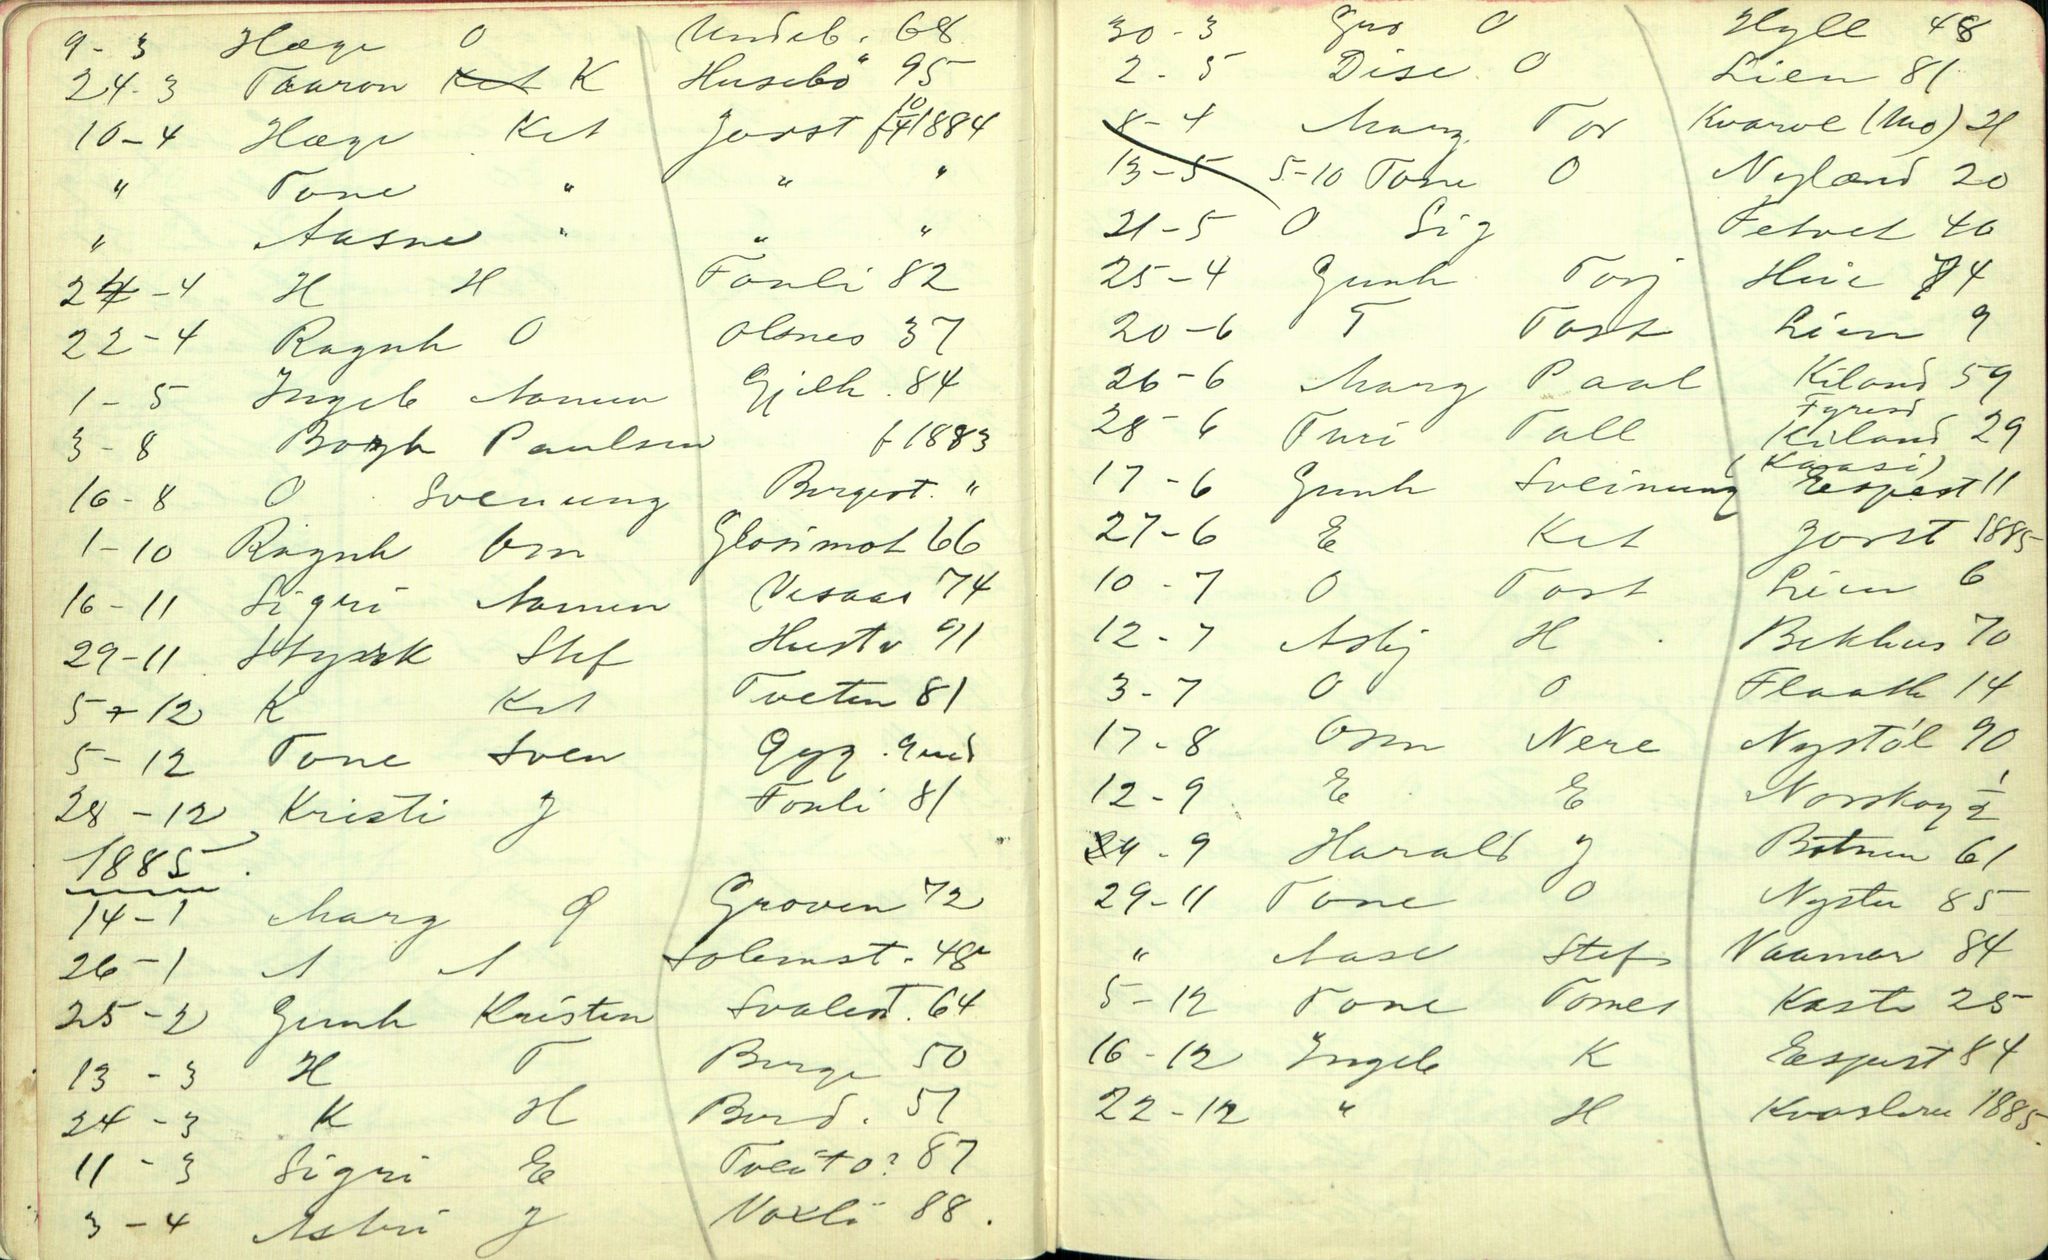 9-3 Hæge O Undeb. 68
24-3 Taaron Ket K Husebö 95
10-4 Hæge Ket Jorst f 10/4 1884
" Tone " " "
" Aasne " " "
24-4 H H Tonli 82
22-4 Ragnh O Olsnes 37
1-5 Ingeb Aamun Gjelh. 84
3-8 Borgh Paulsen f 1883
16-8 O Svenung Bergest. "
1-10 Ragnh Orm Glosimot 66
16-11 Sigri Aamun Vesaas 74
29-11 Styrk Stef Hustv 91
5-12 K Ket Tveten 81
5-12 Tone Sven
28-12 Kristi J Tonli 81
1885.
14-1 Marg O Groven 72
26-1 A A Solemst. 48
25-2 Gunh Kristen Svalest. 64
13-3 H T Berge 50
24-3 K H Burd. 51
11-3 Sigri E Tveito? 87
3-4 Asbri J Voxli 88.
30-3 Gro O Hyll 48
2-5 Dise O Lien 81
8-4 Marg Tor Kvarve (Mo) 21
13-5 5-10 Tone O Nylænd 20
21-5 O Sig Tetvet 46
25-4 Gunh Torj Huie 84
20-6 T Tost Lien 9
26-6 Marg Paal Kiland 59
Fyresd
28-6 Turi Tall Kiland 29
17-6 Gunh Sveinung (Kaasi) Eespest 11
27-6 E Ket Jorst 1885
10-7 O Tost Lien 6
12-7 Asbj H Bekhus 70
3-7 O O Flaath 14
17-8 Orm Nere Nystøl 90
12-9 E E Norskog 1/2
24-9 Harald J Bøtnen 61
29-11 Tone O Nystu 85
" Aase Stef Vaamar 84
5-12 Tone Tomes Kasti 25
16-12 Ingeb K Eespest 84
22-12 " H 1885.